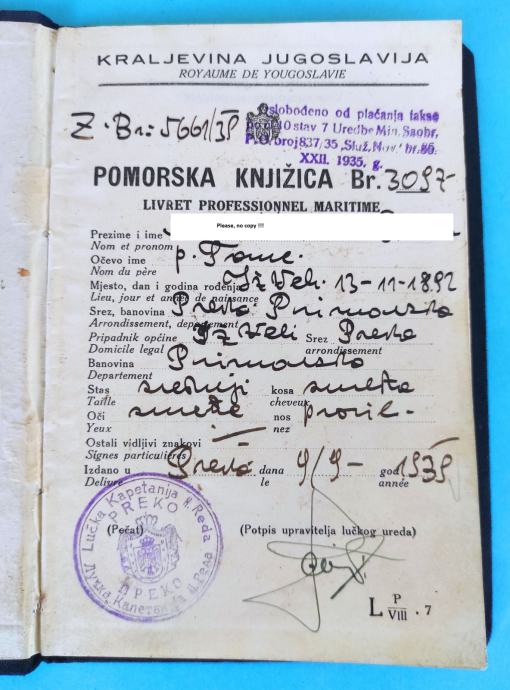 KRALJEVINA JUGOSLAVIJA
ROYAUME DE YOUGOSLAVIE
Z. Br: 5661/39
oslobođeno od plaćanja takse
po čl. 10 stav 7 Uredbe Min. Saobr.
P.O. broj 837/35 „Služ. Nov.“ br. 86.
XXII. 1935. g.
POMORSKA KNJIŽICA Br. 3097-
LIVRET PROFESSIONNEL MARITIME
Please, no copy !!!
Prezime i ime
Nom et pronom
Očevo ime p. Tome.
Nom du père
Mjesto, dan i godina rođenja Iž Veli 13-11-1892
Lieu, jour et année de naissance
Srez, banovina Preko Primorska
Arrondissement, departement
Pripadnik općine Iž Veli Srez Preko
Domicile legal arrondissement
Banovina Primorska
Departement
Stas srednji kosa smeđa
Taille cheveux
Oči smeđe nos pravil-
Yeux nez
Ostali vidljivi znakovi —
Signes particulières
Izdano u Preko dana 9/9- god. 1939
Delivré le année
Lučka Kapetanija II. Reda
PREKO
(Pečat) (Potpis upravitelja lučkog ureda)
ПРЕКО
Лучка Капетанија II. Реда
L P/VIII · 7